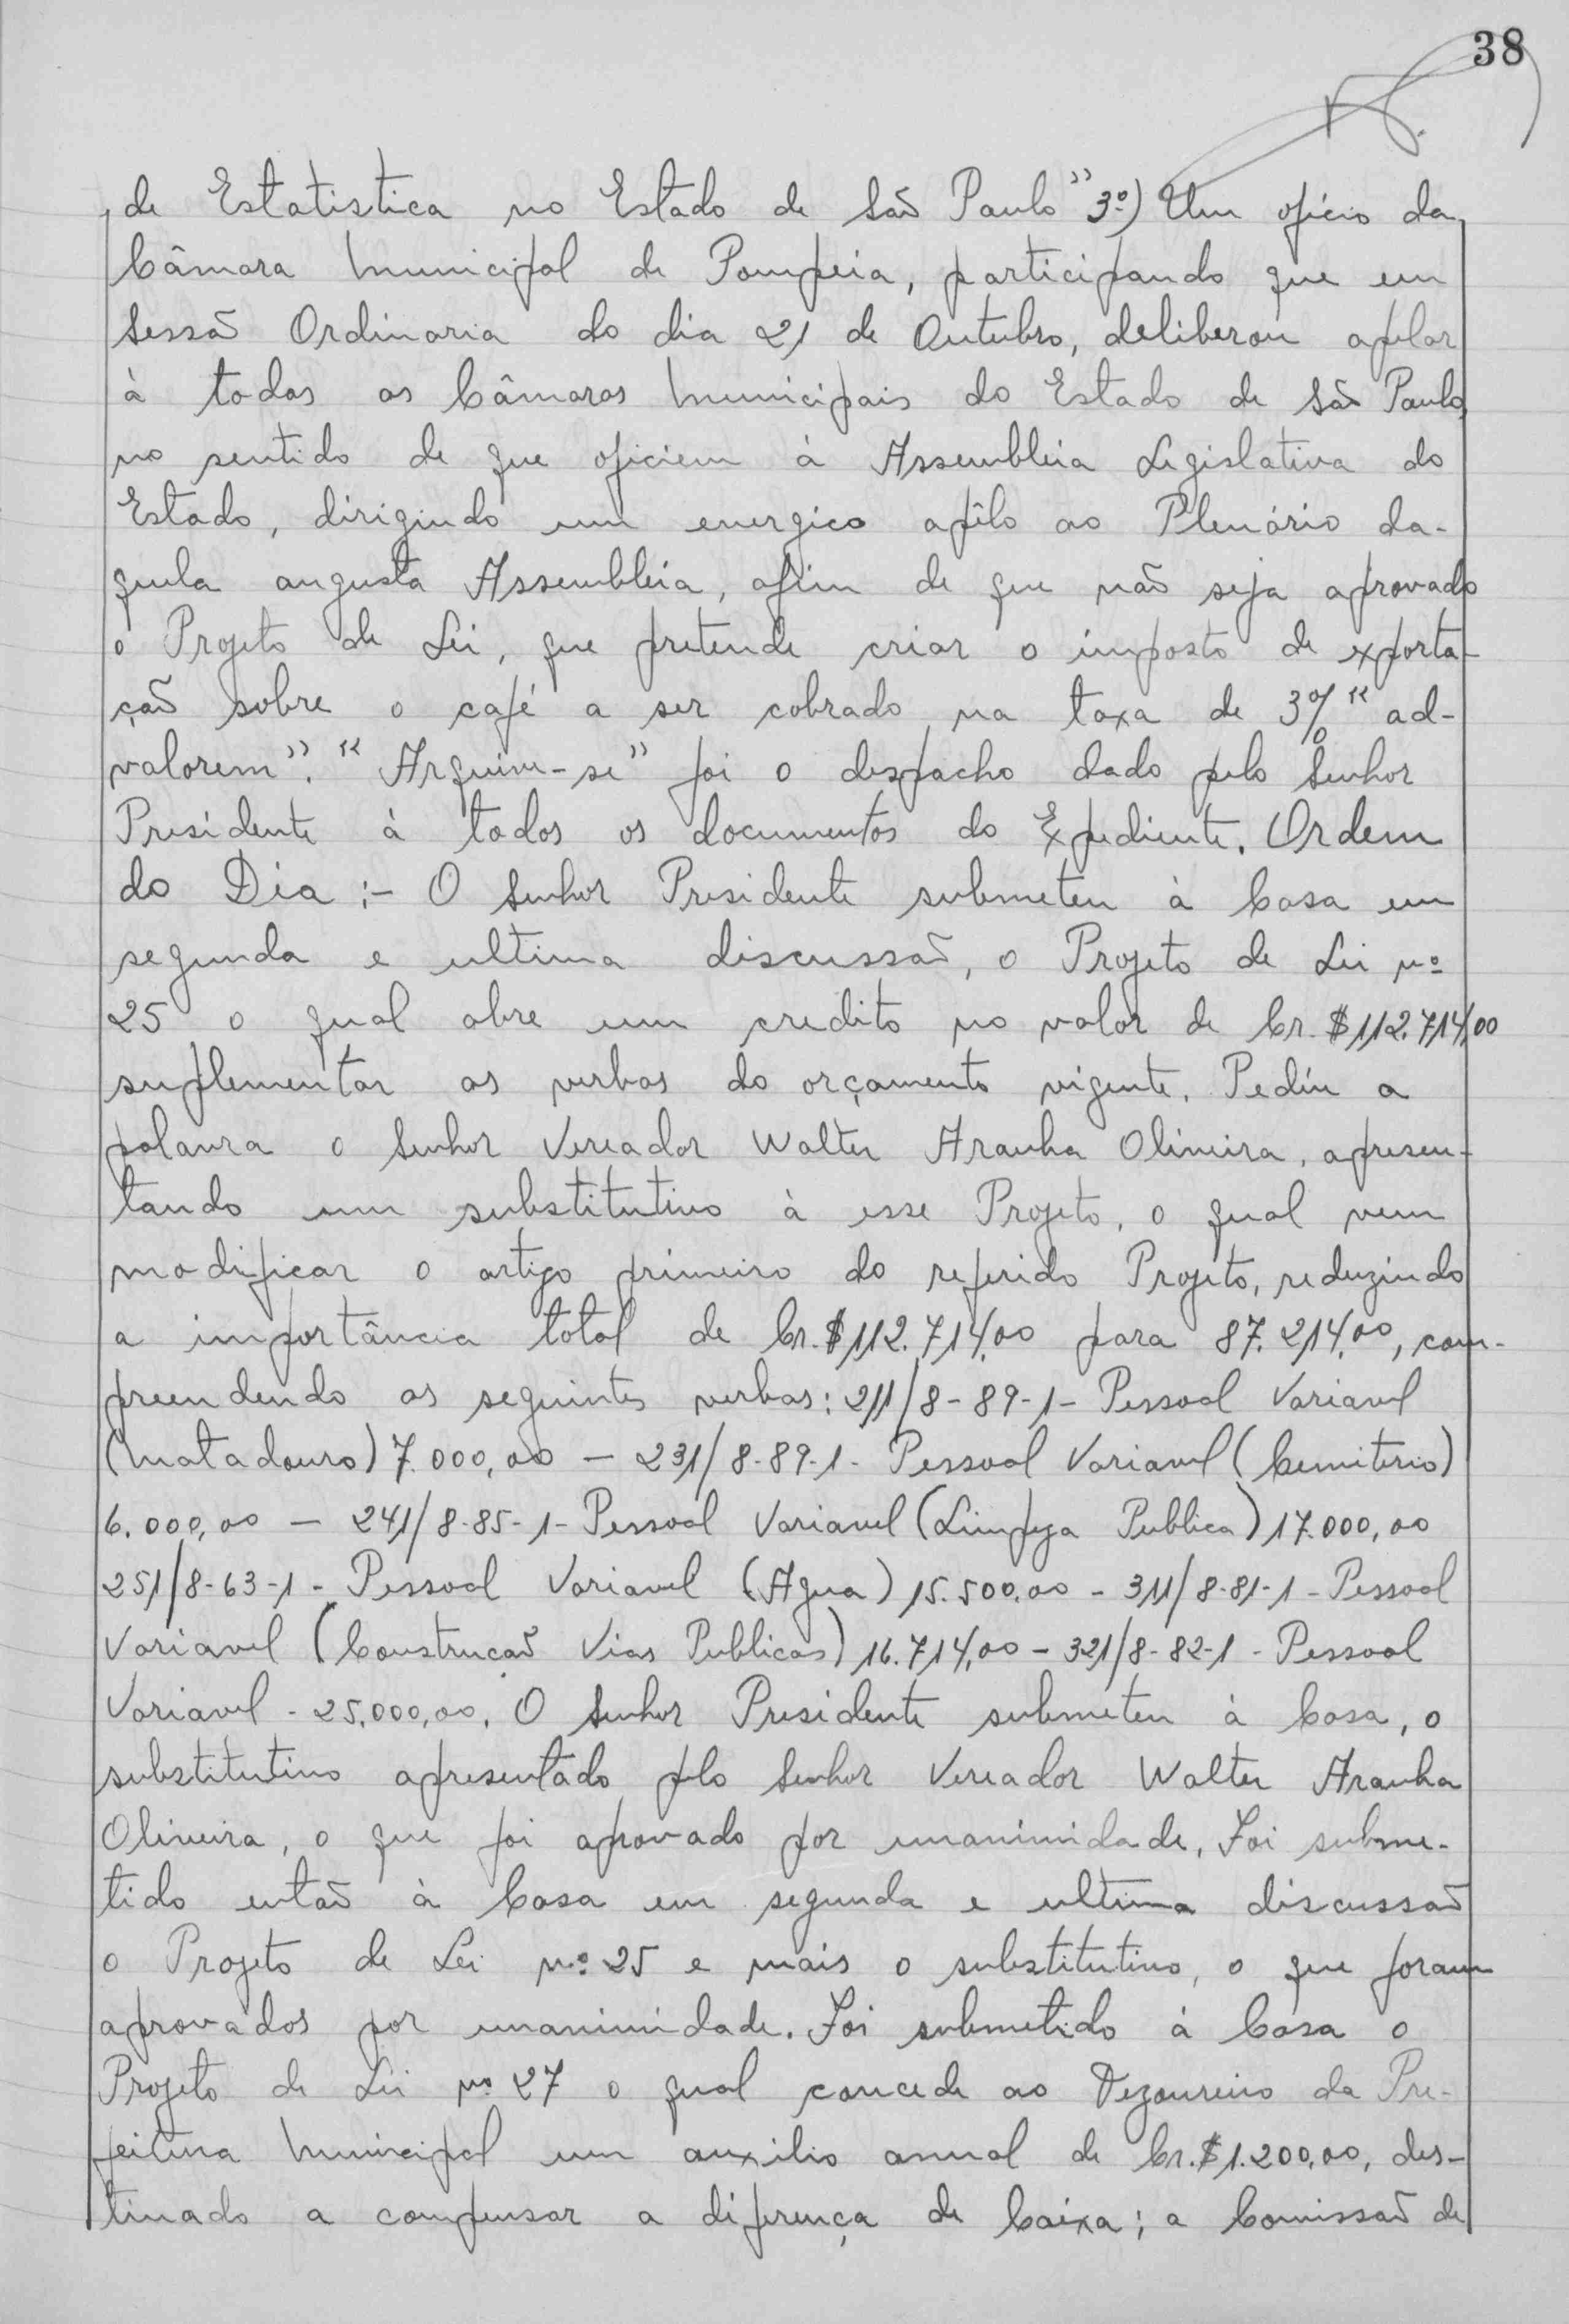 38
de Estatistica no Estado de São Paulo" 3º) Um oficio da
Câmara Municipal de Pompeia, participando que em
Sessão Ordinaria do dia 21 de Outubro, deliberou apelar
à todas as Câmaras Municipais do Estado de São Paulo,
no sentido de que oficiem à Assembleia Legislativa do
Estado, dirigindo um energico apêlo ao Plenário da-
quela augusta Assembleia, afim de que não seja aprovado
o Projeto de Lei, que pretende criar o imposto de exporta-
ção sobre o café a ser cobrado na taxa de 3% "ad-
valorem". "Arquive-se" foi o despacho dado pelo Senhor
Presidente à todos os documentos do Expediente. Ordem
do Dia :- O Senhor Presidente submeteu à Casa em
segunda e ultima discussão, o Projeto de Lei nº
25 o qual abre um credito no valor de Cr.$112.714,00
suplementar as verbas do orçamento vigente. Pediu a
palavra o Senhor Vereador Walter Aranha Oliveira, apresen-
tando um substitutivo à esse Projeto, o qual vem
modificar o artigo primeiro do referido Projeto, reduzindo
a importância total de Cr.$112.714,00 para 87.214,00, com-
preendendo as seguintes verbas: 211/8-89-1- Pessoal Variavel
(Matadouro) 7.000,00 - 231/8-89-1- Pessoal Variavel (Cemiterio)
6.000,00 - 241/8-85-1- Pessoal Variavel (Limpeza Publica) 17.000,00
251/8-63-1- Pessoal Variavel (Agua) 15.500,00 - 311/8-81-1- Pessoal
Variavel (Construcão Vias Publicas) 16.714,00 - 321/8-82-1- Pessoal
Variavel - 25.000,00. O Senhor Presidente submeteu à Casa, o
substitutivo apresentado pelo Senhor Vereador Walter Aranha
Oliveira, o que foi aprovado por unanimidade. Foi subme-
tido então à Casa em segunda e ultima discussão
o Projeto de Lei nº 25 e mais o substitutivo, o que foram
aprovados por unanimidade. Foi submetido à Casa o
Projeto de Lei nº 27 o qual concede ao Tezoureiro da Pre-
feitura Municipal um auxilio anual de Cr.$1.200,00, des-
tinado a compensar a diferença de Caixa; a Comissão de